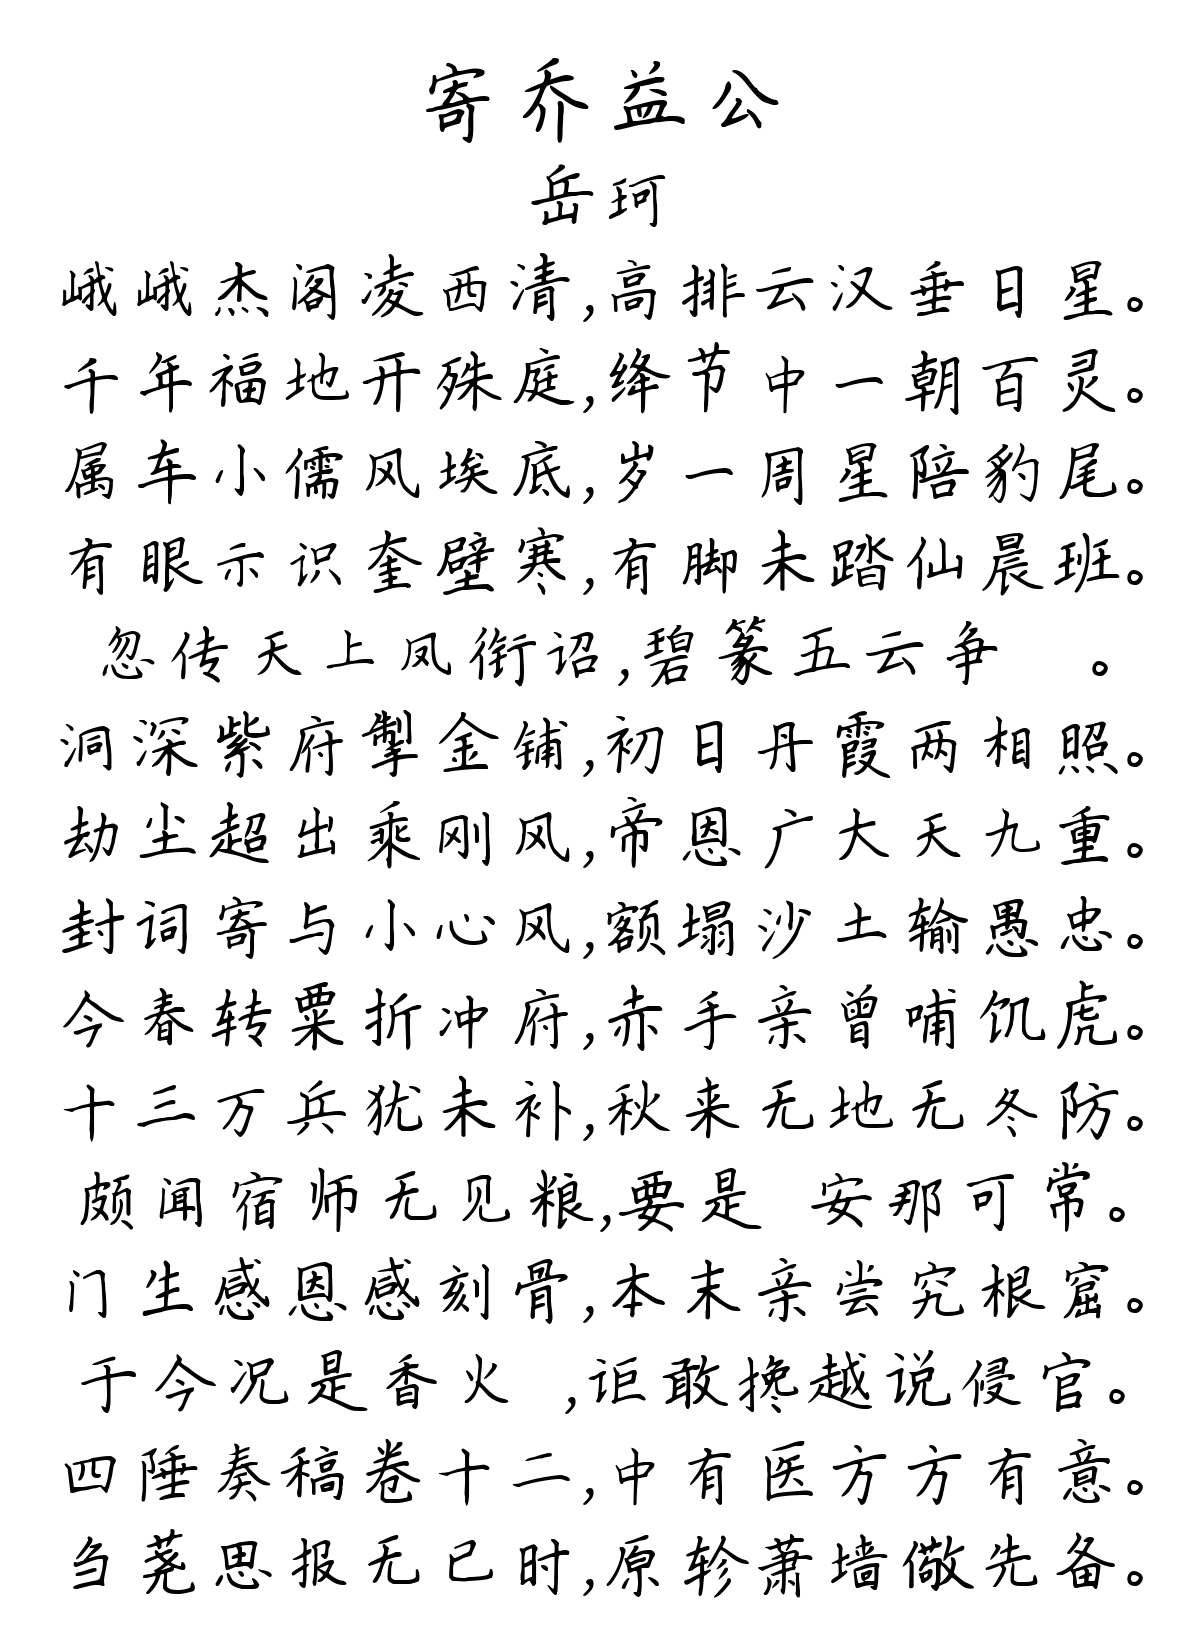 寄乔益公
岳珂
峨峨杰阁凌西清,高排云汉垂日星。
千年福地开殊庭,绛节中一朝百灵。
属车小儒风埃底,岁一周星陪豹尾。
有眼示识奎壁寒,有脚未踏仙晨班。
忽传天上凤衔诏,碧篆五云争 。
洞深紫府掣金铺,初日丹霞两相照。
劫尘超出乘刚风,帝恩广大天九重。
封词寄与小心风,额塌沙土输愚忠。
今春转粟折冲府,赤手亲曾哺饥虎。
十三万兵犹未补,秋来无地无冬防。
颇闻宿师无见粮,要是 安那可常。
门生感恩感刻骨,本末亲尝究根窟。
于今况是香火 ,讵敢搀越说侵官。
四陲奏稿卷十二,中有医方方有意。
刍荛思报无已时,原轸萧墙儆先备。